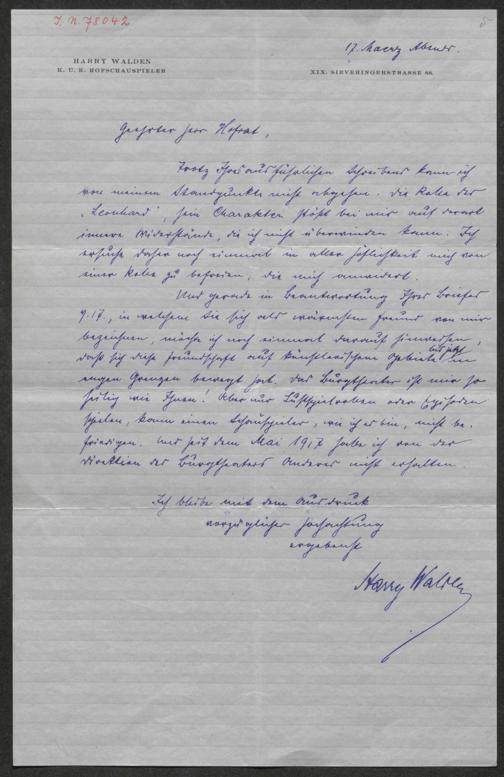 I. N. 78042
HARRY WALDEN
K. U. K. HOFSCHAUSPIELER
17. Maerz Abends.
XIX. SIEVERINGERSTRASSE 88.
Geehrter Herr Hofrat,
Trotz Ihres ausführlichen Schreibens kann ich
von meinem Standpunkte nicht abgehen. Die Rolle des
"Leonhard", sein Charakter stößt bei mir auf derart
innere Widerstände, die ich nicht überwinden kann. Ich
ersuche daher noch einmal in aller Höflichkeit mich von
einer Rolle zu befreien, die mich anwidert.
Und gerade in Beantwortung Ihres Briefes
, in welchem Sie sich als wärmsten Freund von mir
bezeichnen, möchte ich noch einmal darauf hinweisen,
daß sich diese Freundschaft auf künstlerischem Gebiete bis jetzt in
engen Grenzen bewegt hat. Das Burgtheater ist mir so
heilig wie Ihnen! Aber nur Lustspielrollen oder Episoden
spielen, kann einen Schauspieler, wie ich es bin, nicht be-
friedigen. Und seit dem Mai 1917 habe ich von der
Direktion des Burgtheaters Anderes nicht erhalten
Ich bleibe mit dem Ausdruck
vorzüglicher Hochachtung
ergebenst
Harry Walden